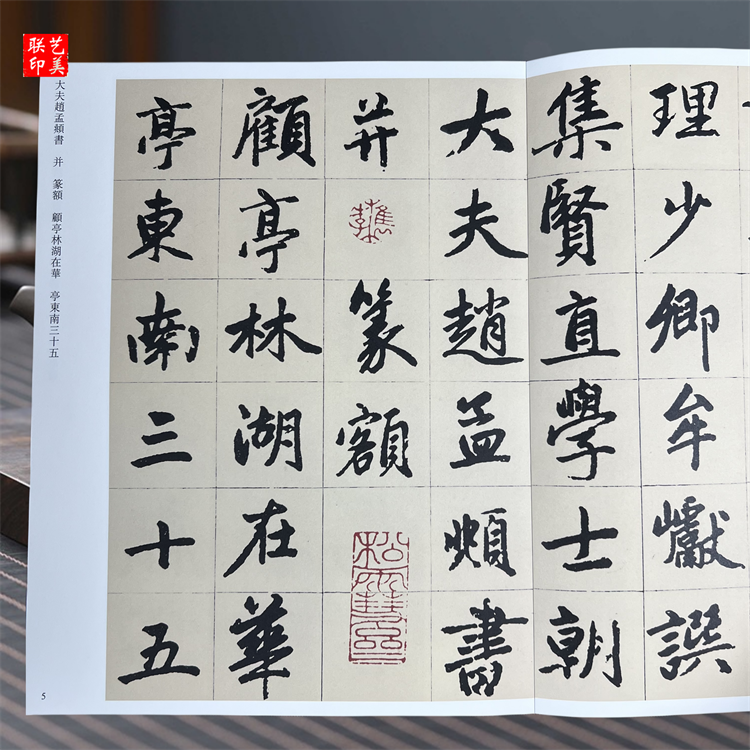 理少卿牟巘譔
集賢直學士朝
大夫趙孟頫書
并
篆額
顧亭林湖在華
亭東南三十五
大夫趙孟頫書 并 篆額 顧亭林湖在華 亭東南三十五
5
艺美
联印